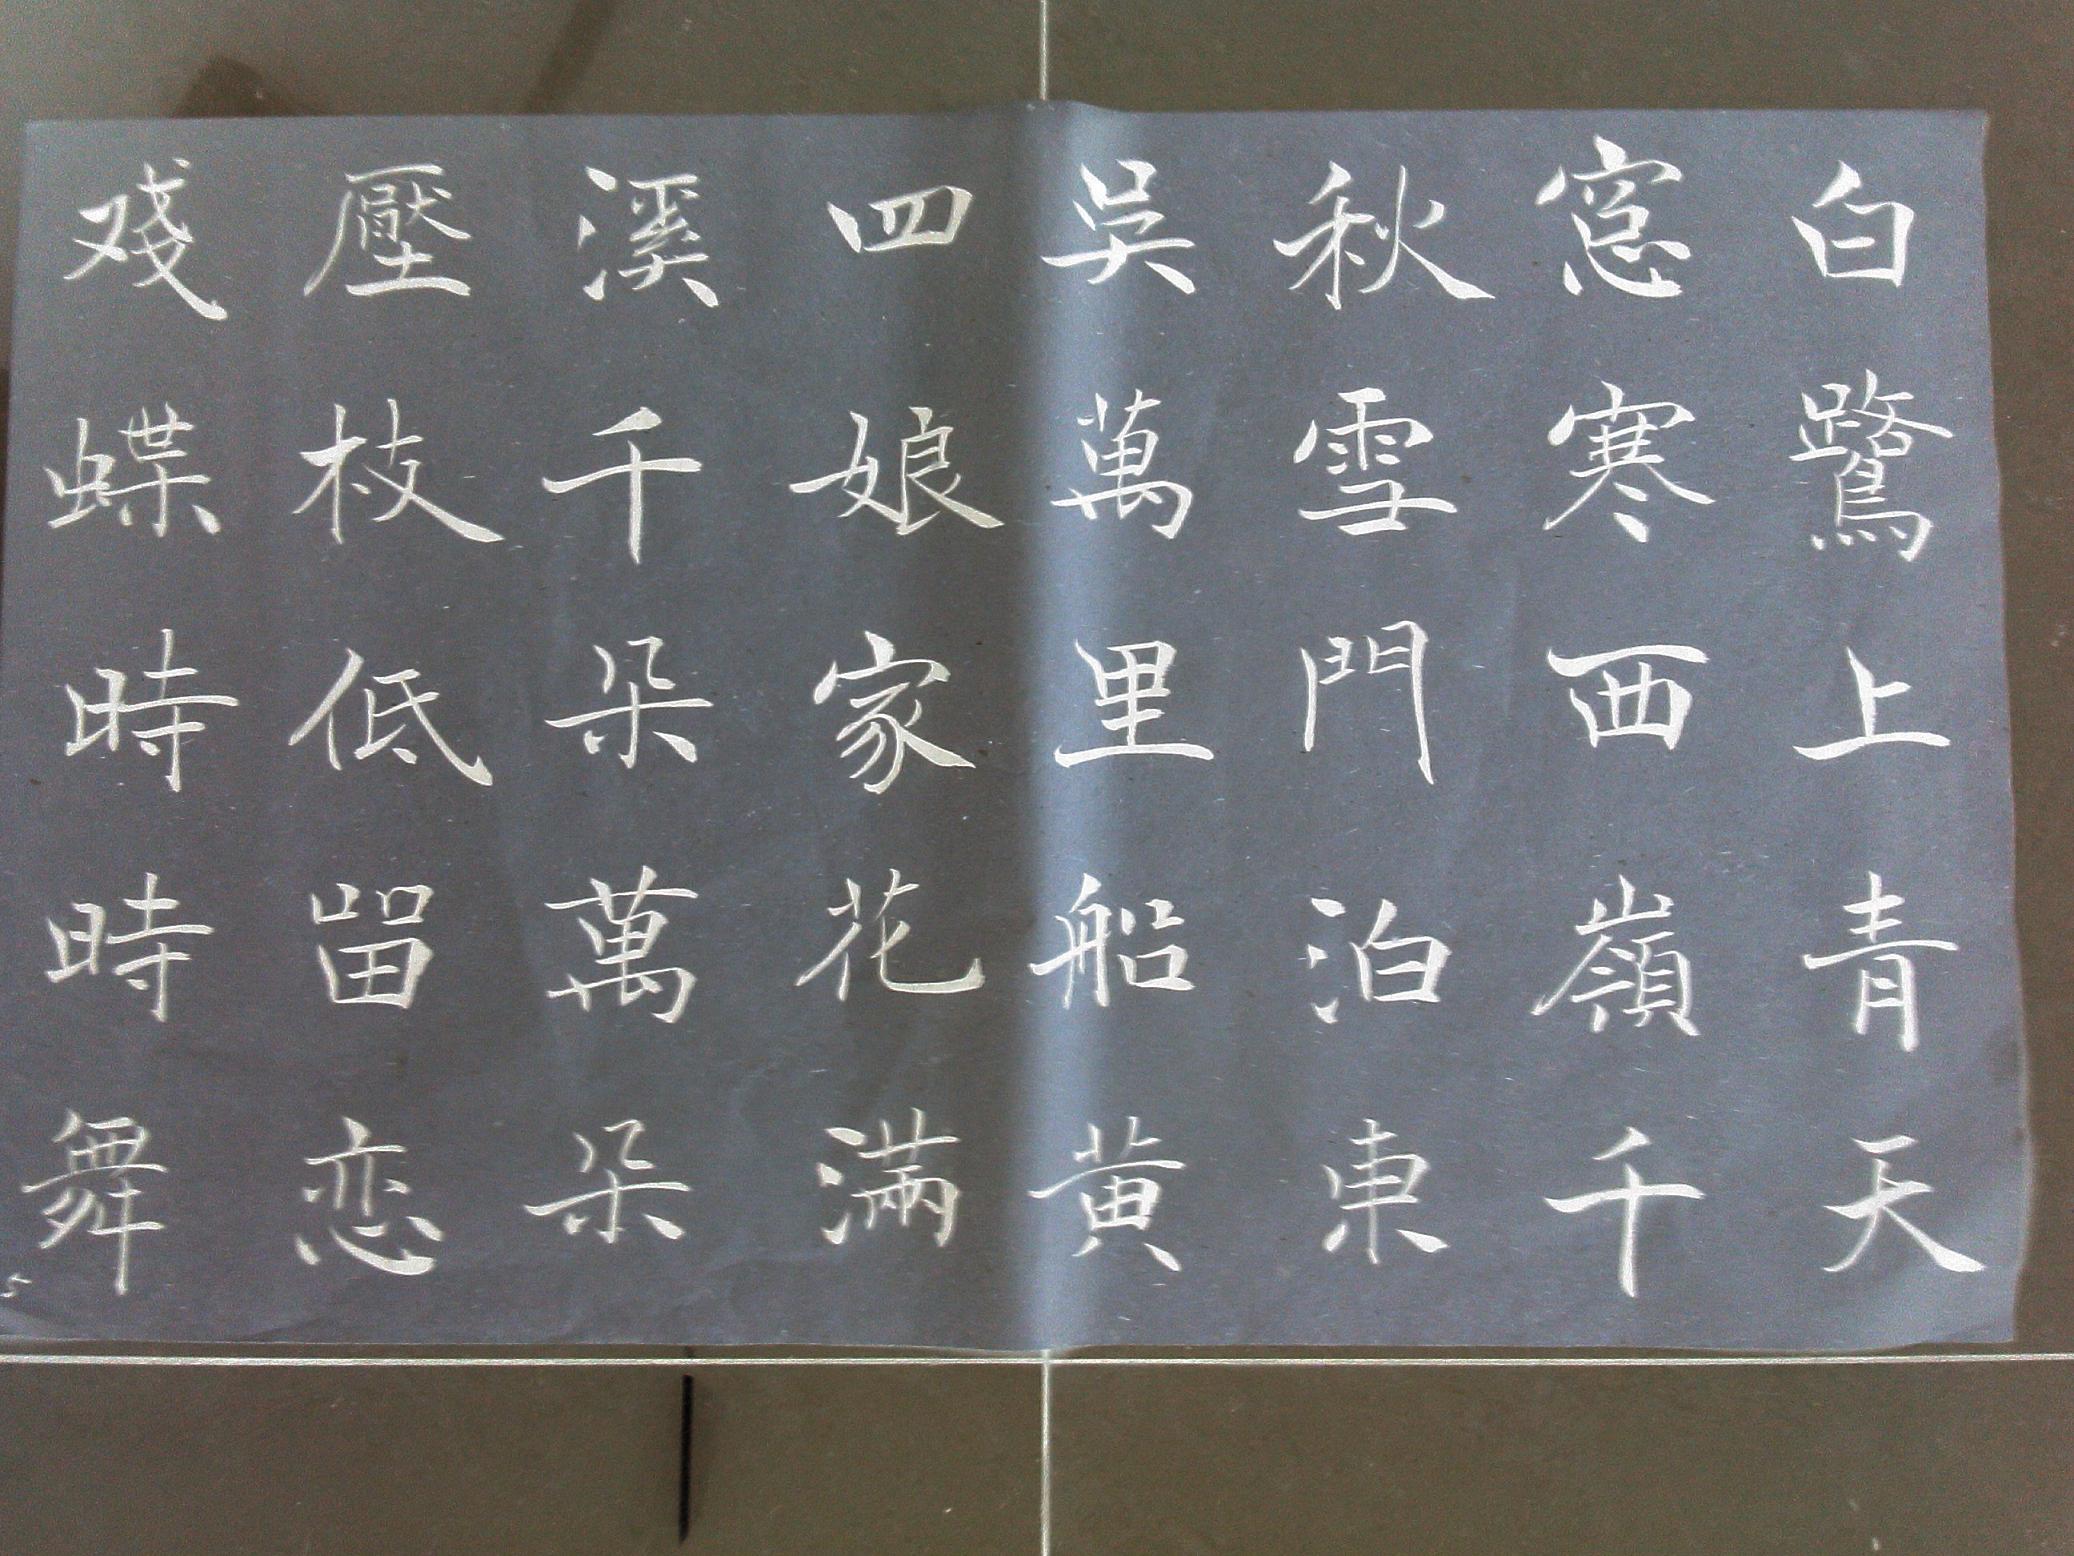 白鷺上青天
窓寒西嶺千
秋雪門泊東
吳萬里船黄
四娘家花滿
溪千朵萬朵
壓枝低留恋
戏蝶時時舞